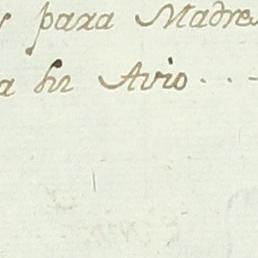 para Madres
a su Avio . . .